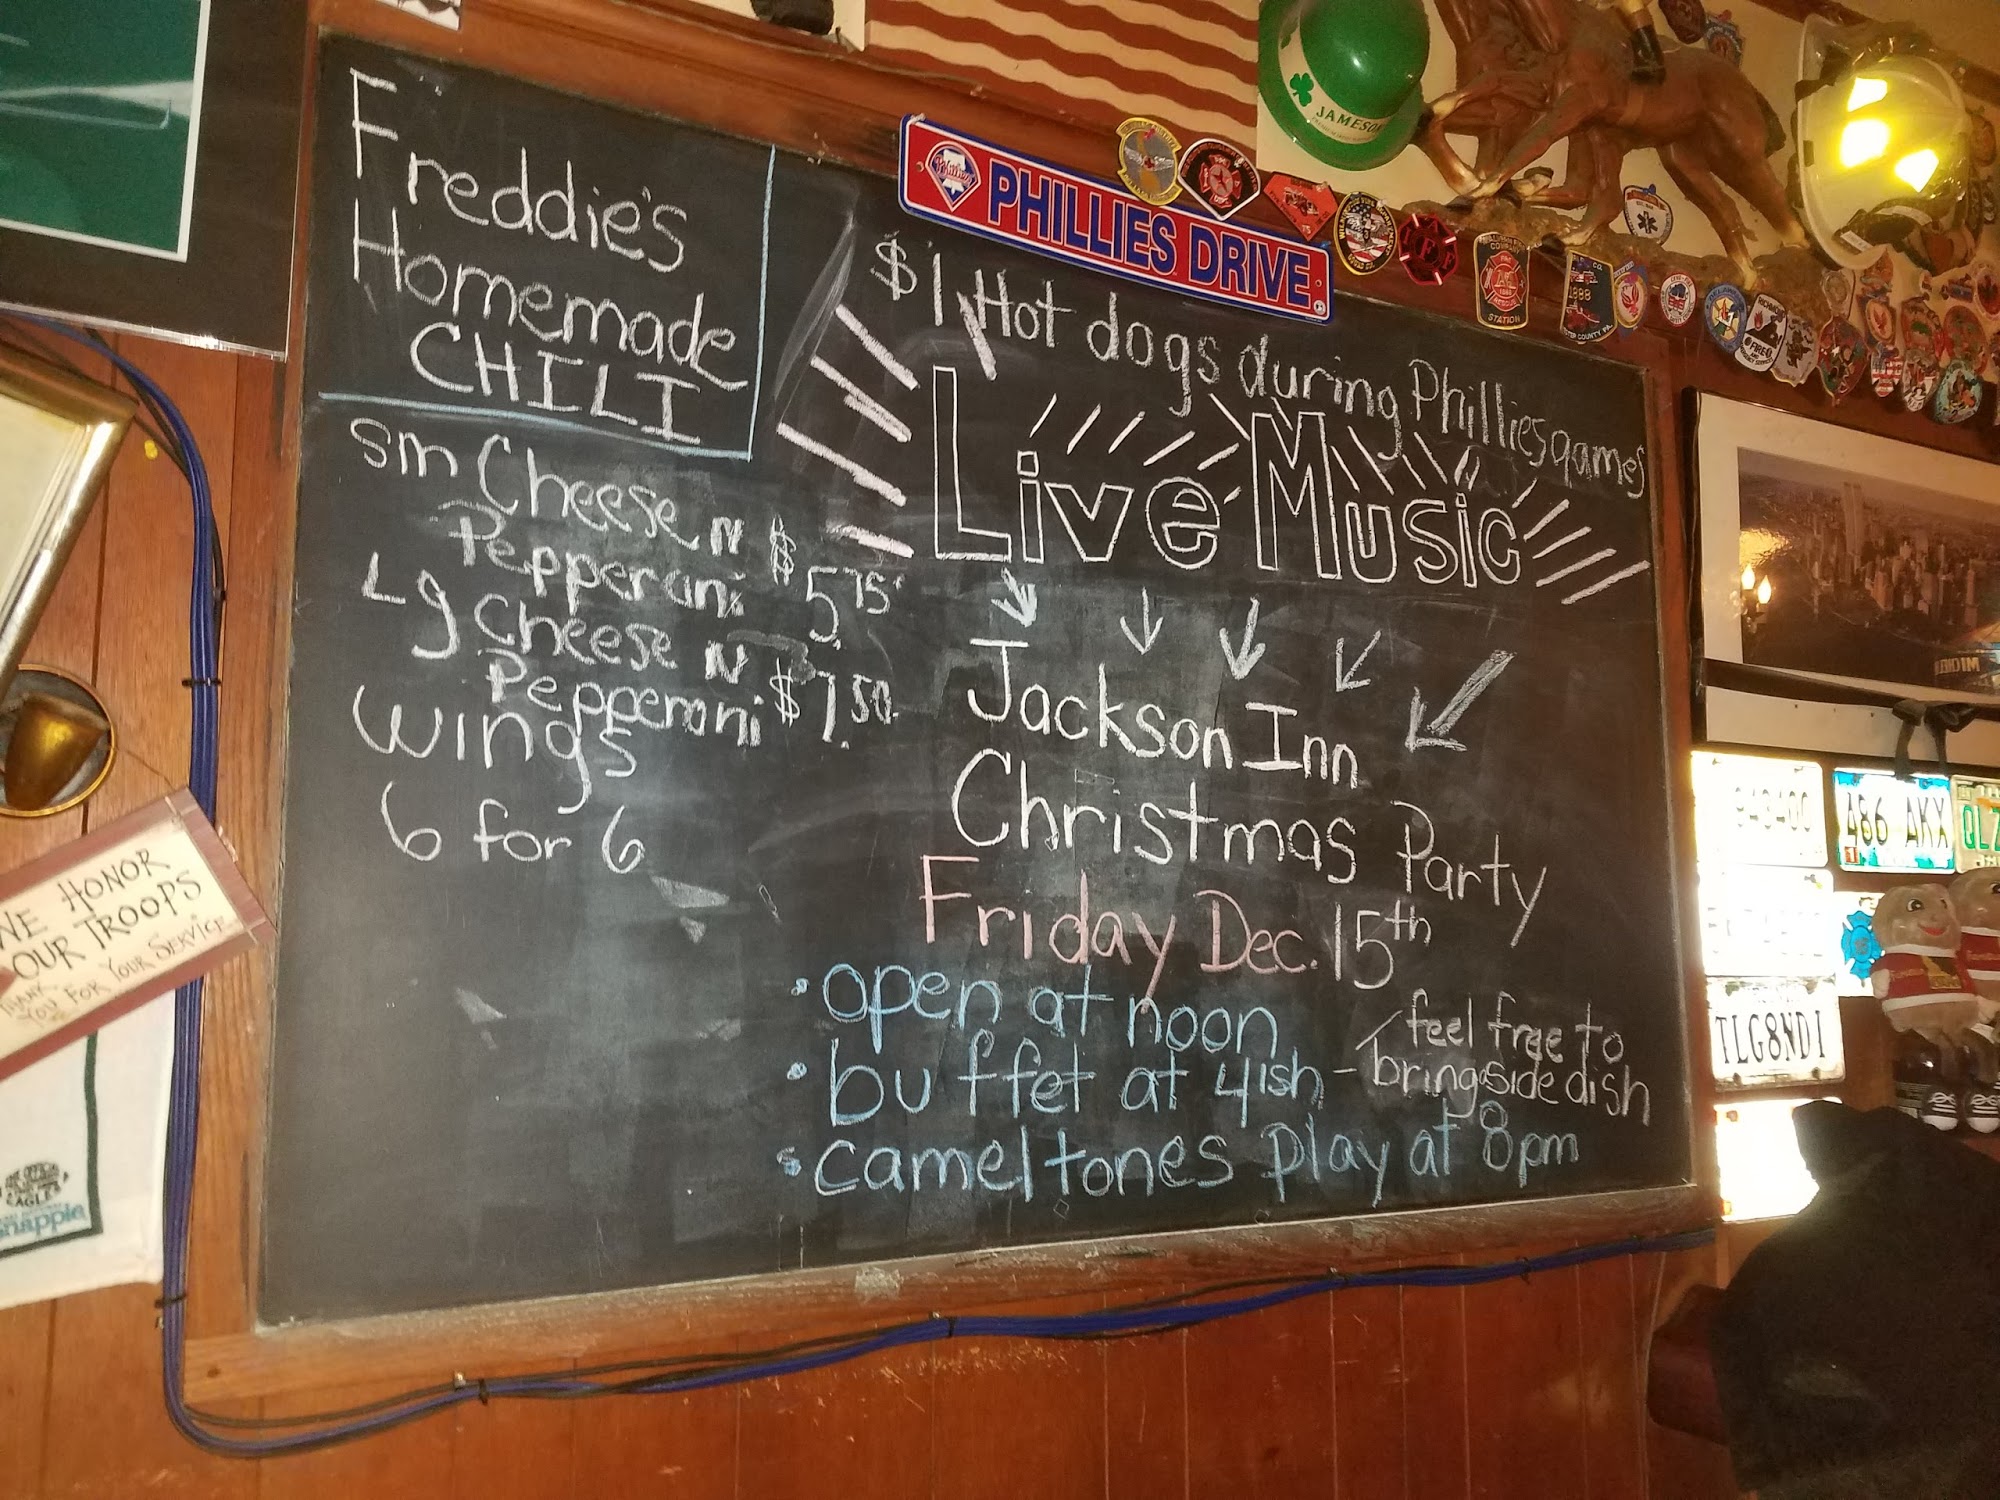 Freddie's
Homemade
CHILI
sm Cheese N
Pepperoni $5.75
Lg Cheese N
Pepperoni $7.50
Wings
6 for 6
PHILLIES DRIVE
Phillies
$1 Hot dogs during Phillies games
Live Music
Jackson Inn
Christmas Party
Friday Dec. 15th
• open at noon
• buffet at 4ish - feel free to
bring a side dish
• cameltones play at 8pm
JAMESON
STATION
1888
WE HONOR
OUR TROOPS
THANK
YOU FOR YOUR SERVICE
EAGLES
snapple
486 AKX
QLZ
TLG8NDI